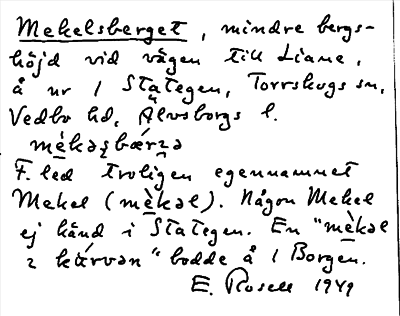 Mekelsberget, mindre bergs-
höjd vid vägen till Liane,
å nr 1 Stategen, Torrskogs sn,
Vedbo hd, Älvsborgs l.
mèkəʂbærʒə
F. led troligen egennamnet
Mekel (mèkəl). Någon Mekel
ej känd i Stategen. En "mèkəl
i kúrvən" bodde å 1 Borgen.
E. Rosell 1949